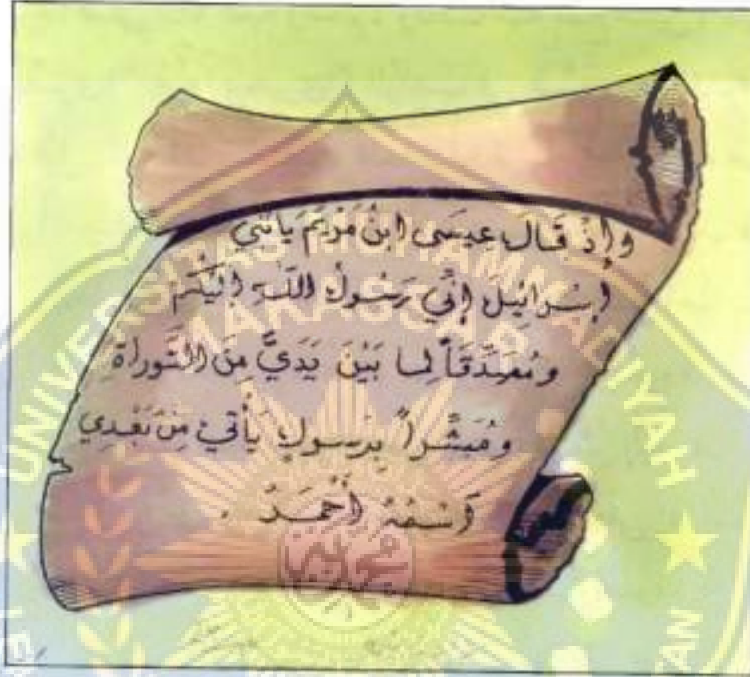 وإِذْ قَالَ عِيسَى ابْنُ مَرْيَمَ يَابَنِي
إِسْرَائِيل إِنِّي رَسُولُ اللَّهِ إِلَيْكُمْ
ومُصَدِّقَاً لِمَا بَيْنَ يَدَيَّ مِنَ التَّوراةِ
ومُبَشِّراً بِرَسولٍ يَأْتي مِنْ بَعْدِي
اسْمُهُ أَحْمَدُ .
UNIVERSITAS MUHAMMADIYAH
MAKASSAR